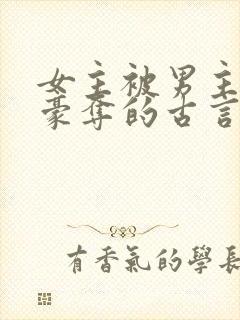 女主被男主
豪奪的古言
有香氣的學長